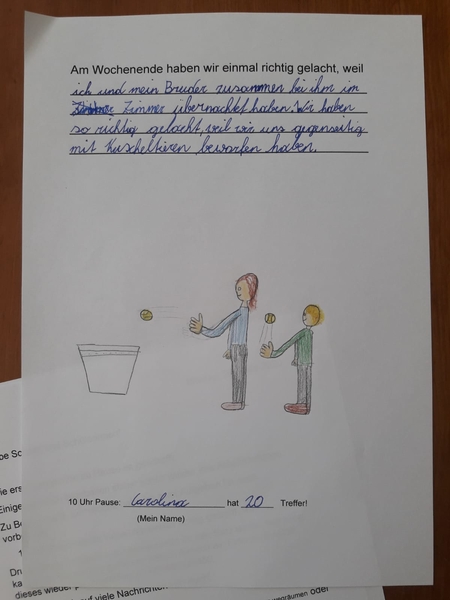 Am Wochenende haben wir einmal richtig gelacht, weil
ich und mein Bruder zusammen bei ihm im
Zimmer übernachtet haben. Wir haben
so richtig gelacht, weil wir uns gegenseitig
mit Kuscheltieren beworfen haben.
10 Uhr Pause: Carolina hat 20 Treffer!
(Mein Name)
ie ers
Einige
Zu Be
vorb
1
Dru
ka
dieses wieder
auf viele Nachrichten
oder